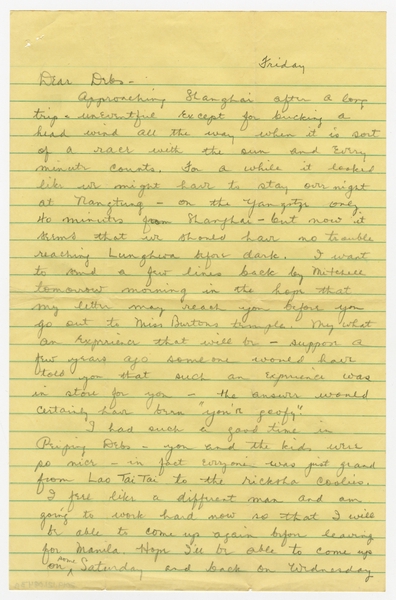 Friday
Dear Debs -
Approaching Shanghai after a long
trip - uneventful except for bucking a
head wind all the way when it is sort
of a race with the sun and every
minute counts. For a while it looked
like we might have to stay over night
at Nangtung - on the Yangtze only
40 minutes from Shanghai - but now it
seems that we should have no trouble
reaching Lunghwa before dark. I want
to send a few lines back by Mitchell
tomorrow morning in the hope that
my letter may reach you before you
go out to Miss Burtons temple. My what
an experience that will be - suppose a
few years ago some one would have
told you that such an experience was
in store for you - the answer would
certainly have been "you're goofy".
I had such a good time in
Peiping Debs - you and the kids were
so nice - in fact everyone was just grand
from Lao Tai Tai to the ricksha coolies.
I feel like a different man and am
going to work hard now so that I will
be able to come up again before leaving
for Manila. Hope I'll be able to come up
on some Saturday and back on Wednesday